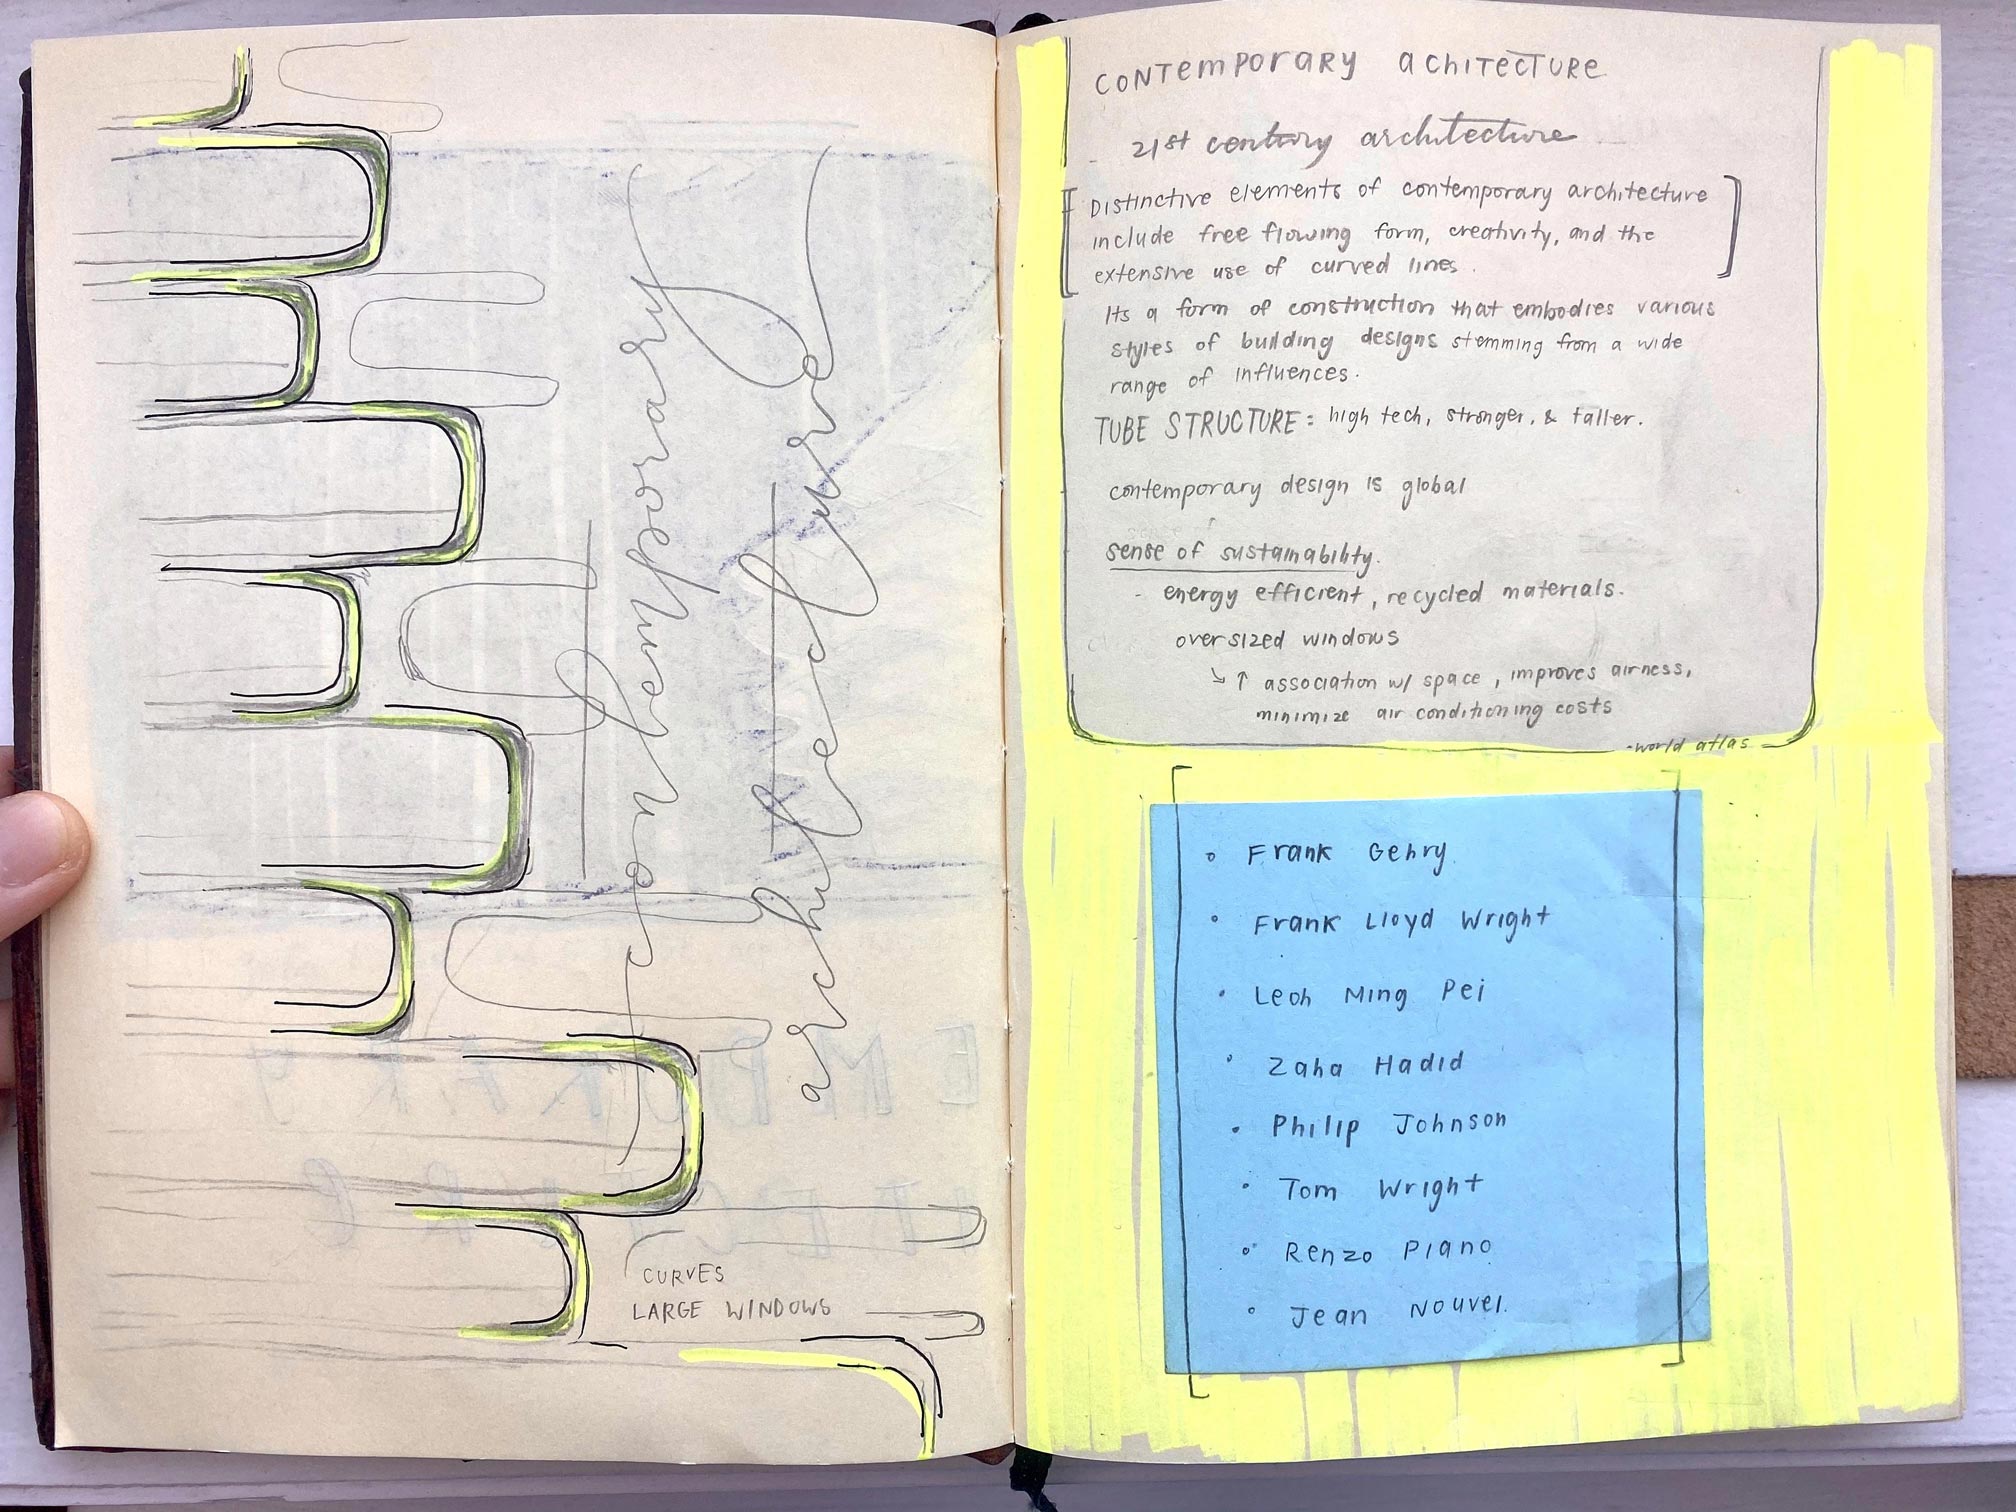 contemporary
architecture
CURVES
LARGE WINDOWS
CONTEMPORARY ACHITECTURE
- 21st century architecture
[Distinctive elements of contemporary architecture
include free flowing form, creativity, and the
extensive use of curved lines.]
Its a form of construction that embodies various
styles of building designs stemming from a wide
range of influences.
TUBE STRUCTURE: high tech, stronger, & taller.
contemporary design is global
sense of sustainability.
- energy efficient, recycled materials.
oversized windows
↘ ↑ association w/ space, improves airness,
minimize air conditioning costs
-world atlas
• Frank Gehry
• Frank Lloyd Wright
• Leoh Ming Pei
• Zaha Hadid
• Philip Johnson
• Tom Wright
• Renzo Piano
• Jean Nouvel.